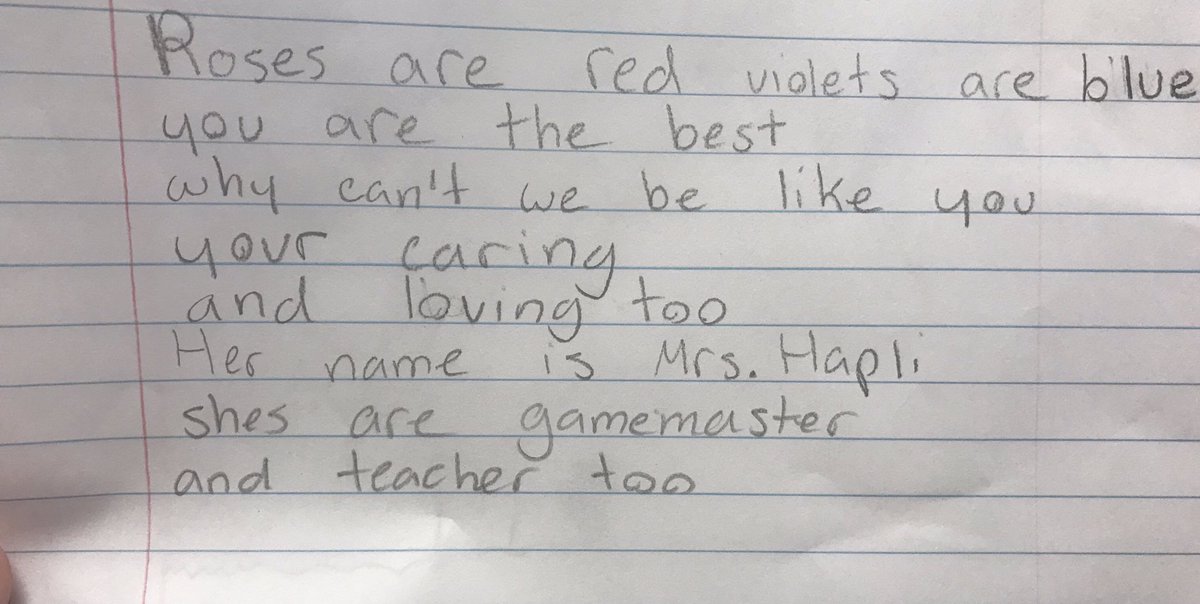 Roses are red violets are blue
you are the best
why can't we be like you
your caring
and loving too
Her name is Mrs. Hapli
shes are gamemaster
and teacher too